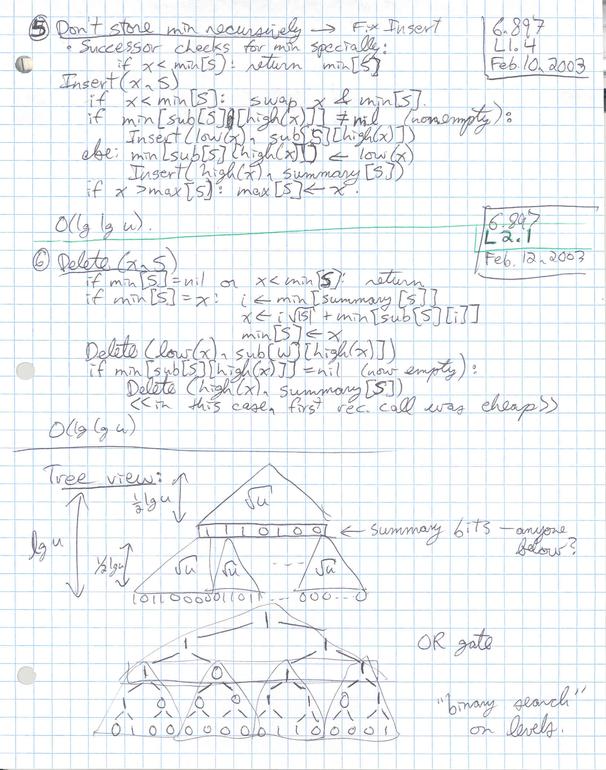 ⑤ Don't store min recursively → Fix Insert
6.897
L1.4
Feb. 10, 2003
• Successor checks for min specially:
if x < min[S]: return min[S]
Insert(x, S)
if x < min[S]: swap x & min[S].
if min[sub[S][high(x)]] ≠ nil (nonempty):
Insert(low(x), sub[S][high(x)])
else: min[sub[S][high(x)]] ← low(x)
Insert(high(x), summary[S])
if x > max[S]: max[S] ← x.
O(lg lg u).
6.897
L2.1
Feb. 12, 2003
⑥ Delete(x, S)
if min[S] = nil or x < min[S]: return
if min[S] = x: i ← min[summary[S]]
x ← i√|S| + min[sub[S][i]]
min[S] ← x
Delete(low(x), sub[W][high(x)])
if min[sub[S][high(x)]] = nil (now empty):
Delete(high(x), summary[S])
<<in this case, first rec. call was cheap>>
O(lg lg u)
Tree view:
½ lg u
√u
lg u
1 1 1 0 1 0 0 ← summary bits — anyone
below?
½ lg u
√u √u ... √u
1011000001101 ... 000...0
1
OR gate
1 1
1 0 1 1
"binary search"
on levels.
1 1 0 0 1 1 1 0
0 1 0 0 0 0 0 0 0 1 1 0 0 0